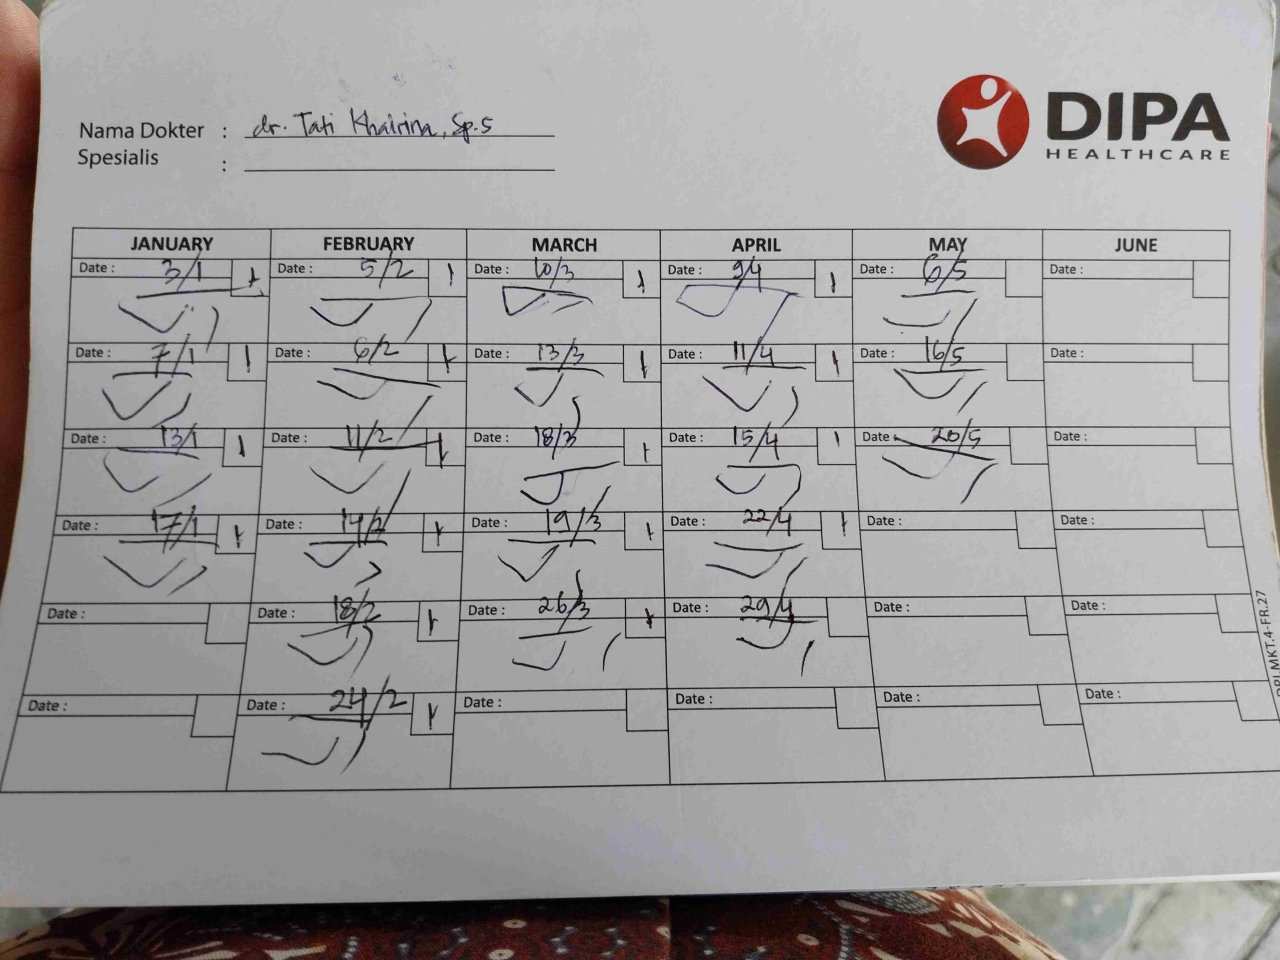 Nama Dokter : dr. Tati Khairina, Sp.S
Spesialis :
DIPA
HEALTHCARE
JANUARY FEBRUARY MARCH APRIL MAY JUNE
Date : 3/1 1 Date : 5/2 1 Date : 10/3 1 Date : 9/4 1 Date : 6/5 Date :
Date : 7/1 1 Date : 6/2 1 Date : 13/3 1 Date : 11/4 1 Date : 16/5 Date :
Date : 13/1 1 Date : 11/2 1 Date : 18/3 1 Date : 15/4 1 Date : 20/5 Date :
Date : 17/1 1 Date : 14/2 1 Date : 19/3 1 Date : 22/4 1 Date : Date :
Date : Date : 18/2 1 Date : 26/3 1 Date : 29/4 Date : Date :
Date : Date : 24/2 1 Date : Date : Date : Date :
MKT.4-FR.27